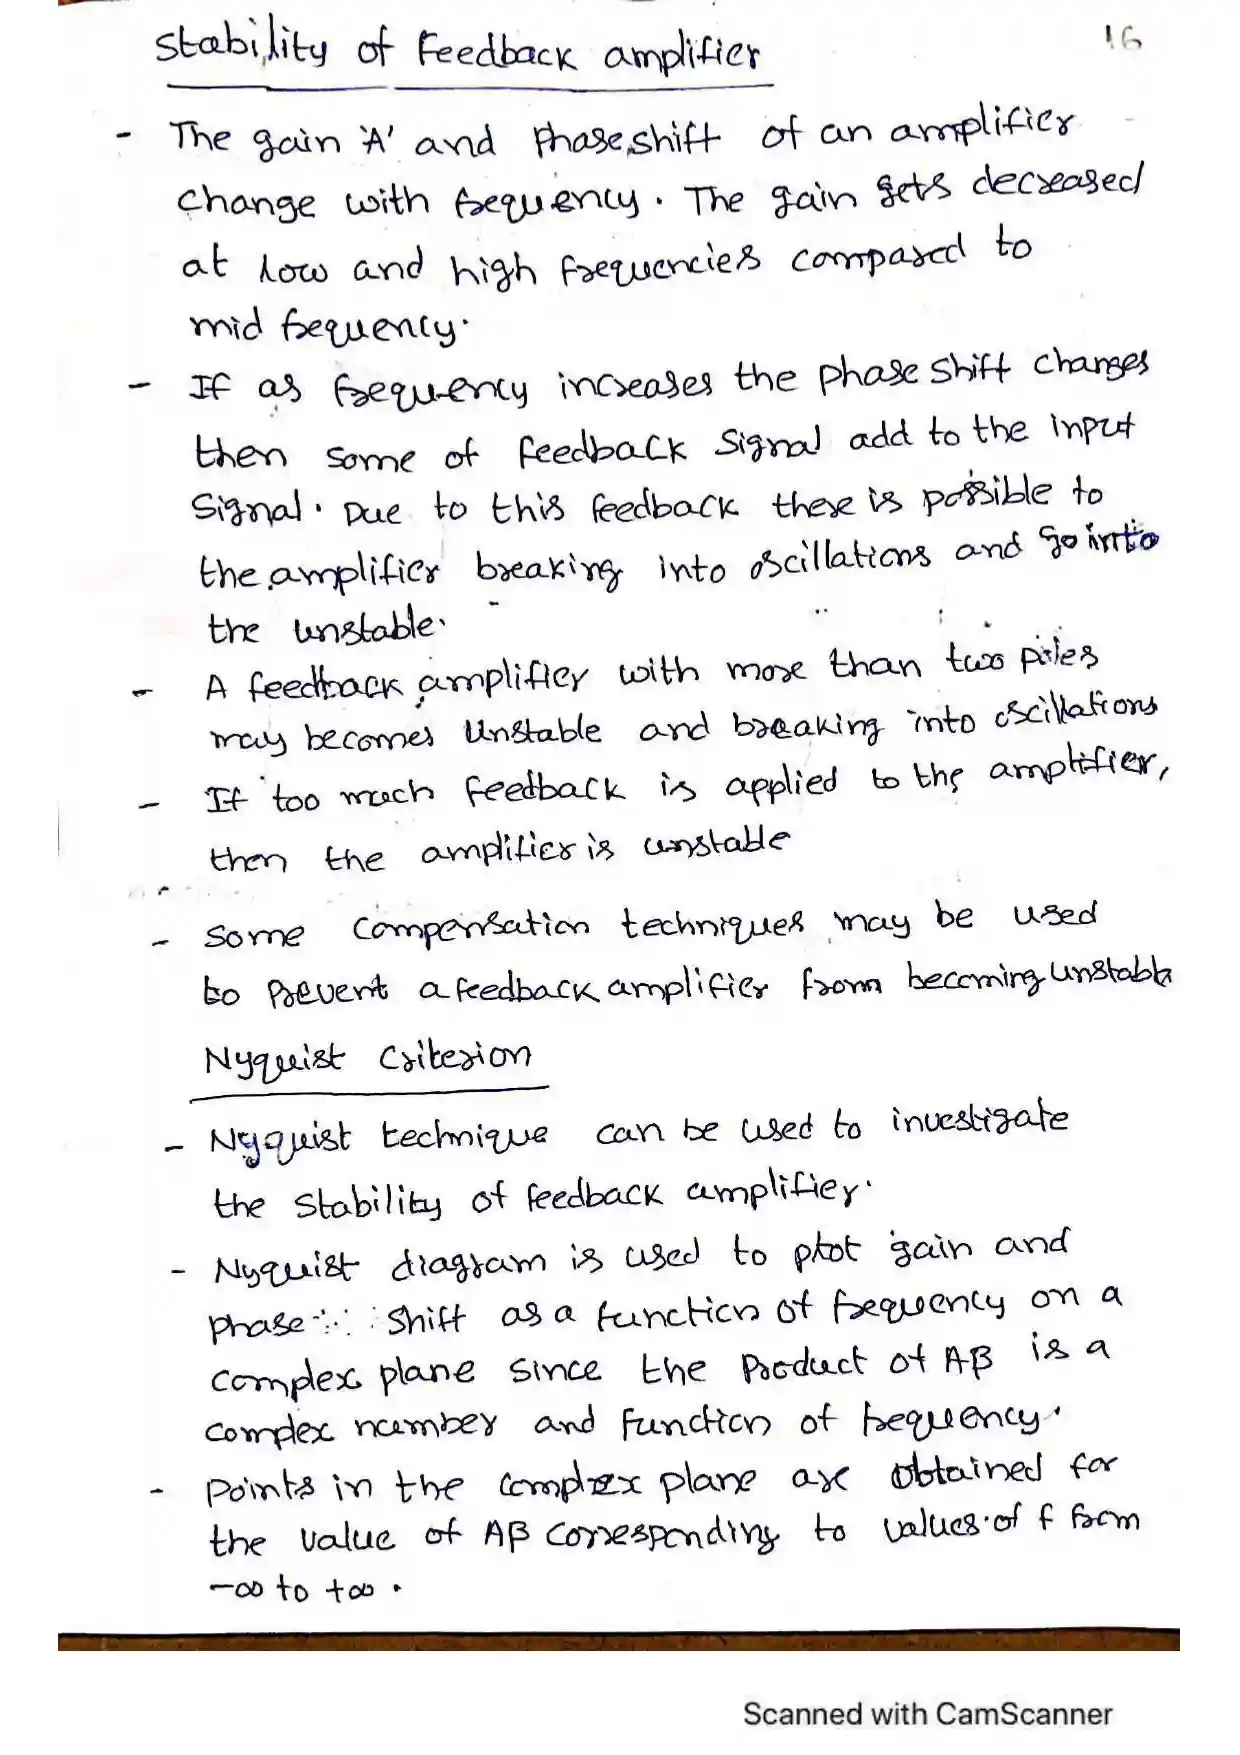 Stability of Feedback amplifier
16
- The gain 'A' and Phase shift of an amplifier
change with frequency. The gain gets decreased
at low and high frequencies compared to
mid frequency.
- If as frequency increases the phase shift changes
then some of feedback Signal add to the input
Signal. Due to this feedback there is possible to
the amplifier breaking into oscillations and go into
the unstable.
- A feedback amplifier with more than two poles
may becomes Unstable and breaking into oscillations
- If too much feedback is applied to the amplifier,
then the amplifier is unstable
- Some Compensation techniques may be used
to Prevent a feedback amplifier from becoming unstable
Nyquist Criterion
- Nyquist technique can be used to investigate
the Stability of feedback amplifier.
- Nyquist diagram is used to plot gain and
phase shift as a function of frequency on a
complex plane since the Product of Aβ is a
complex number and function of frequency.
- Points in the complex plane are obtained for
the value of Aβ corresponding to values of f from
-∞ to +∞.
Scanned with CamScanner